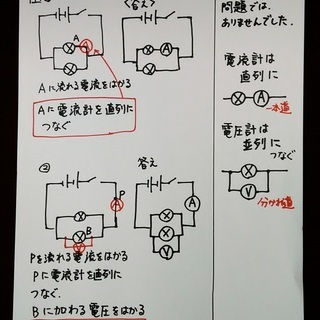 〈答え〉
A
A
Aに流れる電流をはかる
Aに電流計を直列に
つなぐ
②
答え
P
A
A
B
V
V
Pを流れる電流をはかる
Pに電流計を直列に
つなぐ.
Bに加わる電圧をはかる
問題では、
ありませんでした.
電流計は
直列に
A
一本道
電圧計は
並列に
つなぐ
V
分かれ道